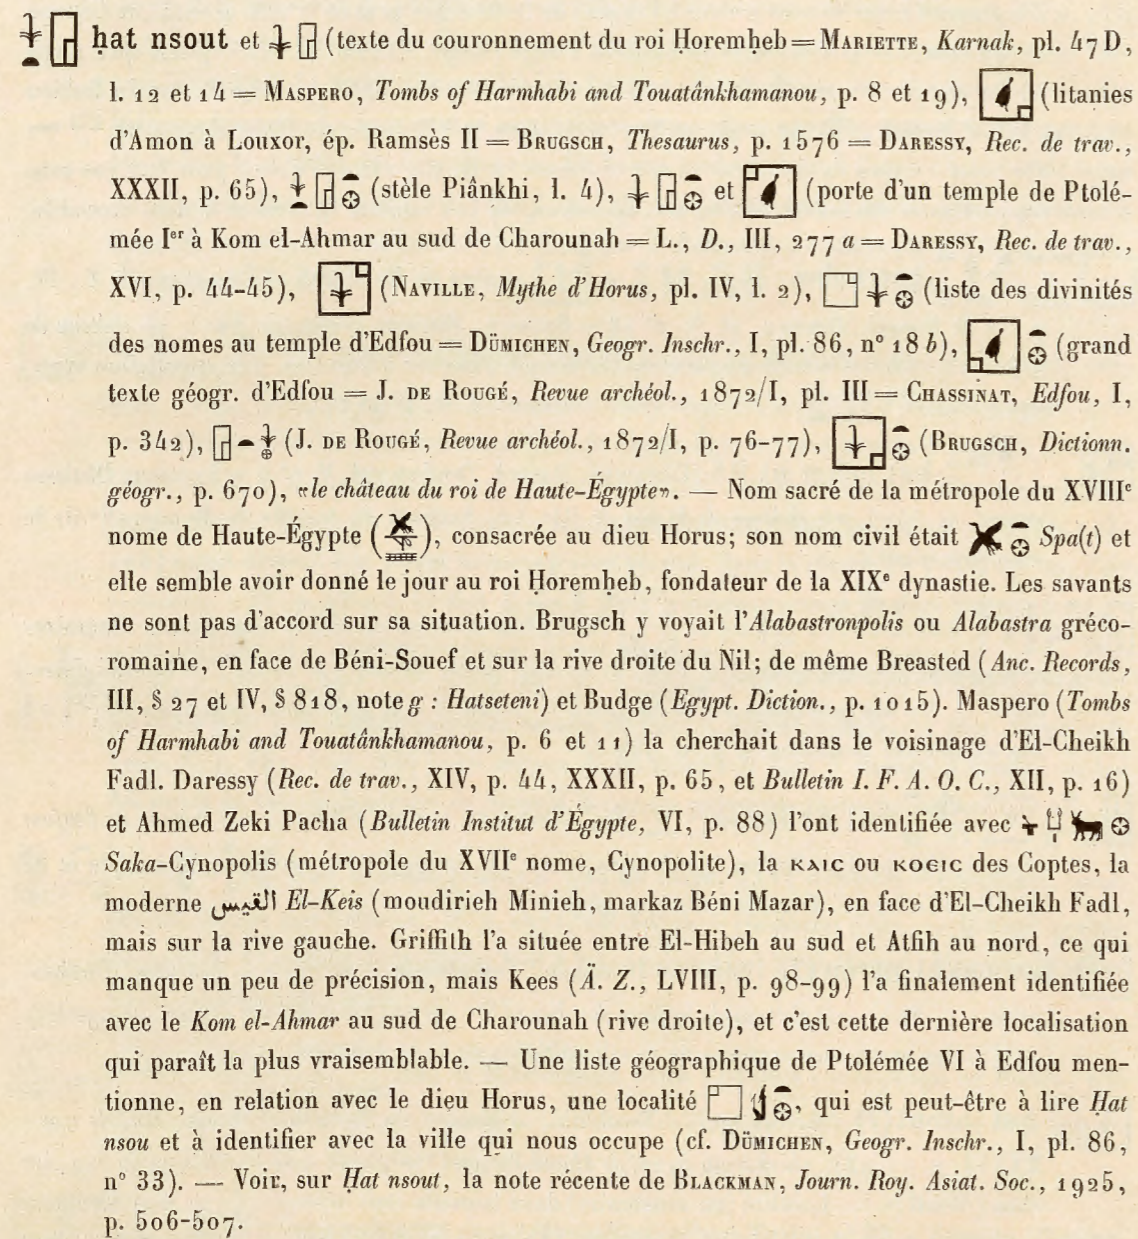 ḥat nsout et (texte du couronnement du roi Ḥoremḥeb = MARIETTE, Karnak, pl. 47 D,
l. 12 et 14 = MASPERO, Tombs of Harmhabi and Touatânkhamanou, p. 8 et 19), (litanies
d'Amon à Louxor, ép. Ramsès II = BRUGSCH, Thesaurus, p. 1576 = DARESSY, Rec. de trav.,
XXXII, p. 65), (stèle Piânkhi, l. 4), et (porte d'un temple de Ptolé-
mée Ier à Kom el-Ahmar au sud de Charounah = L., D., III, 277 a = DARESSY, Rec. de trav.,
XVI, p. 44-45), (NAVILLE, Mythe d'Horus, pl. IV, l. 2), (liste des divinités
des nomes au temple d'Edfou = DÜMICHEN, Geogr. Inschr., I, pl. 86, n° 18 b), (grand
texte géogr. d'Edfou = J. DE ROUGÉ, Revue archéol., 1872/I, pl. III = CHASSINAT, Edfou, I,
p. 342), (J. DE ROUGÉ, Revue archéol., 1872/I, p. 76-77), (BRUGSCH, Dictionn.
géogr., p. 670), «le château du roi de Haute-Égypte». — Nom sacré de la métropole du XVIIIe
nome de Haute-Égypte ( ), consacrée au dieu Horus; son nom civil était Spa(t) et
elle semble avoir donné le jour au roi Ḥoremḥeb, fondateur de la XIXe dynastie. Les savants
ne sont pas d'accord sur sa situation. Brugsch y voyait l'Alabastronpolis ou Alabastra gréco-
romaine, en face de Béni-Souef et sur la rive droite du Nil; de même Breasted (Anc. Records,
III, § 27 et IV, § 818, note g : Hatseteni) et Budge (Egypt. Diction., p. 1015). Maspero (Tombs
of Harmhabi and Touatânkhamanou, p. 6 et 11) la cherchait dans le voisinage d'El-Cheikh
Fadl. Daressy (Rec. de trav., XIV, p. 44, XXXII, p. 65, et Bulletin I. F. A. O. C., XII, p. 16)
et Ahmed Zeki Pacha (Bulletin Institut d'Égypte, VI, p. 88) l'ont identifiée avec
Saka-Cynopolis (métropole du XVIIe nome, Cynopolite), la ⲕⲁⲓⲥ ou ⲕⲟⲉⲓⲥ des Coptes, la
moderne القيس El-Keis (moudirieh Minieh, markaz Béni Mazar), en face d'El-Cheikh Fadl,
mais sur la rive gauche. Griffith l'a située entre El-Hibeh au sud et Atfih au nord, ce qui
manque un peu de précision, mais Kees (Ä. Z., LVIII, p. 98-99) l'a finalement identifiée
avec le Kom el-Ahmar au sud de Charounah (rive droite), et c'est cette dernière localisation
qui paraît la plus vraisemblable. — Une liste géographique de Ptolémée VI à Edfou men-
tionne, en relation avec le dieu Horus, une localité , qui est peut-être à lire Ḥat
nsou et à identifier avec la ville qui nous occupe (cf. DÜMICHEN, Geogr. Inschr., I, pl. 86,
n° 33). — Voir, sur Ḥat nsout, la note récente de BLACKMAN, Journ. Roy. Asiat. Soc., 1925,
p. 506-507.